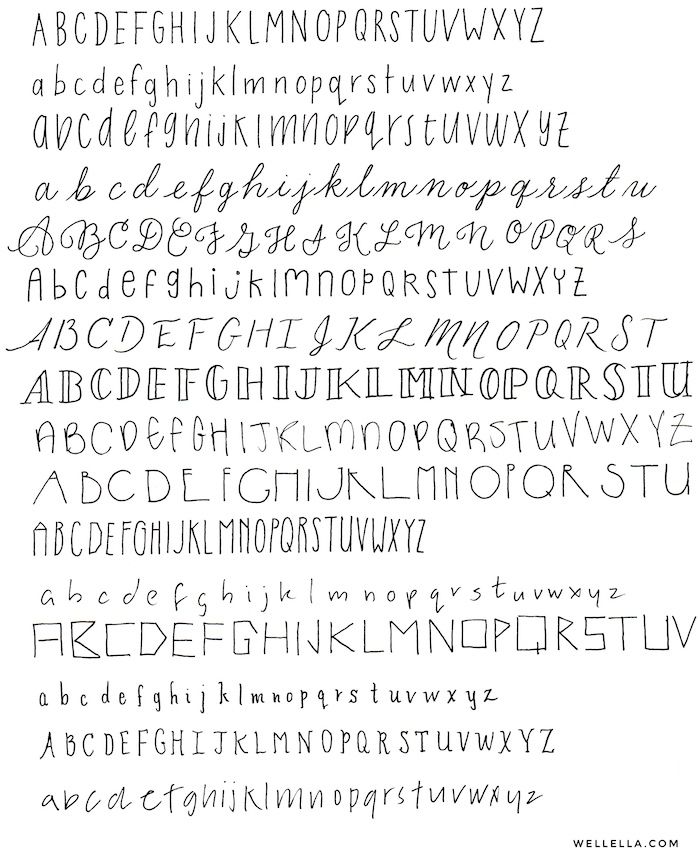 ABCDEFGHIJKLMNOPQRSTUVWXYZ
abcdefghijklmnopqrstuvwxyz
abcdefghijklmnopqrstuvwxyz
abcdefghijklmnopqrstu
ABCDEFGHIKLMNOPQRS
AbcdefghijklmnopQRSTUVWXYZ
ABCDEFGHIJKLMNOPQRST
ABCDEFGHIJKLMNOPQRSTU
ABCDEFGHIJKLMNOPQRSTUVWXYZ
ABCDEFGHIJKLMNOPQRSTU
ABCDEFGHIJKLMNOPQRSTUVWXYZ
a b c d e f g h i j k l m n o p q r s t u v w x y z
ABCDEFGHIJKLMNOPQRSTUV
a b c d e f g h i j k l m n o p q r s t u v w x y z
ABCDEFGHIJKLMNOPQRSTUVWXYZ
abcdefghijklmnopqrstuvwxyz
WELLELLA.COM